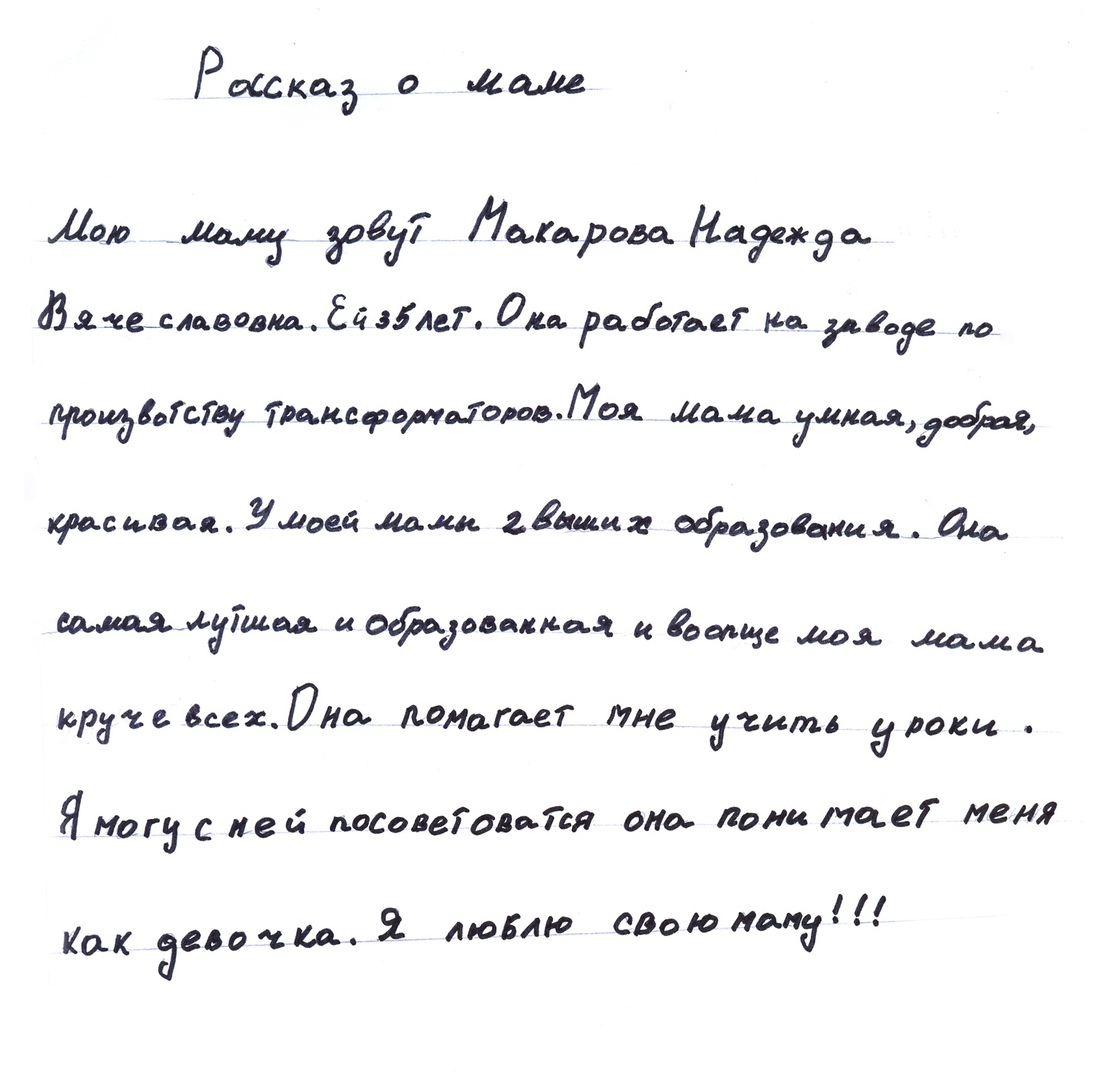 Рассказ о маме
Мою маму зовут Макарова Надежда
Вячеславовна. Ей 35 лет. Она работает на заводе по
произвотству трансформаторов. Моя мама умная, добрая,
красивая. У моей мамы 2 выших образования. Она
самая лутшая и образованная и воопще моя мама
круче всех. Она помагает мне учить уроки.
Я могу с ней посоветоватся она понимает меня
как девочка. Я люблю свою маму!!!